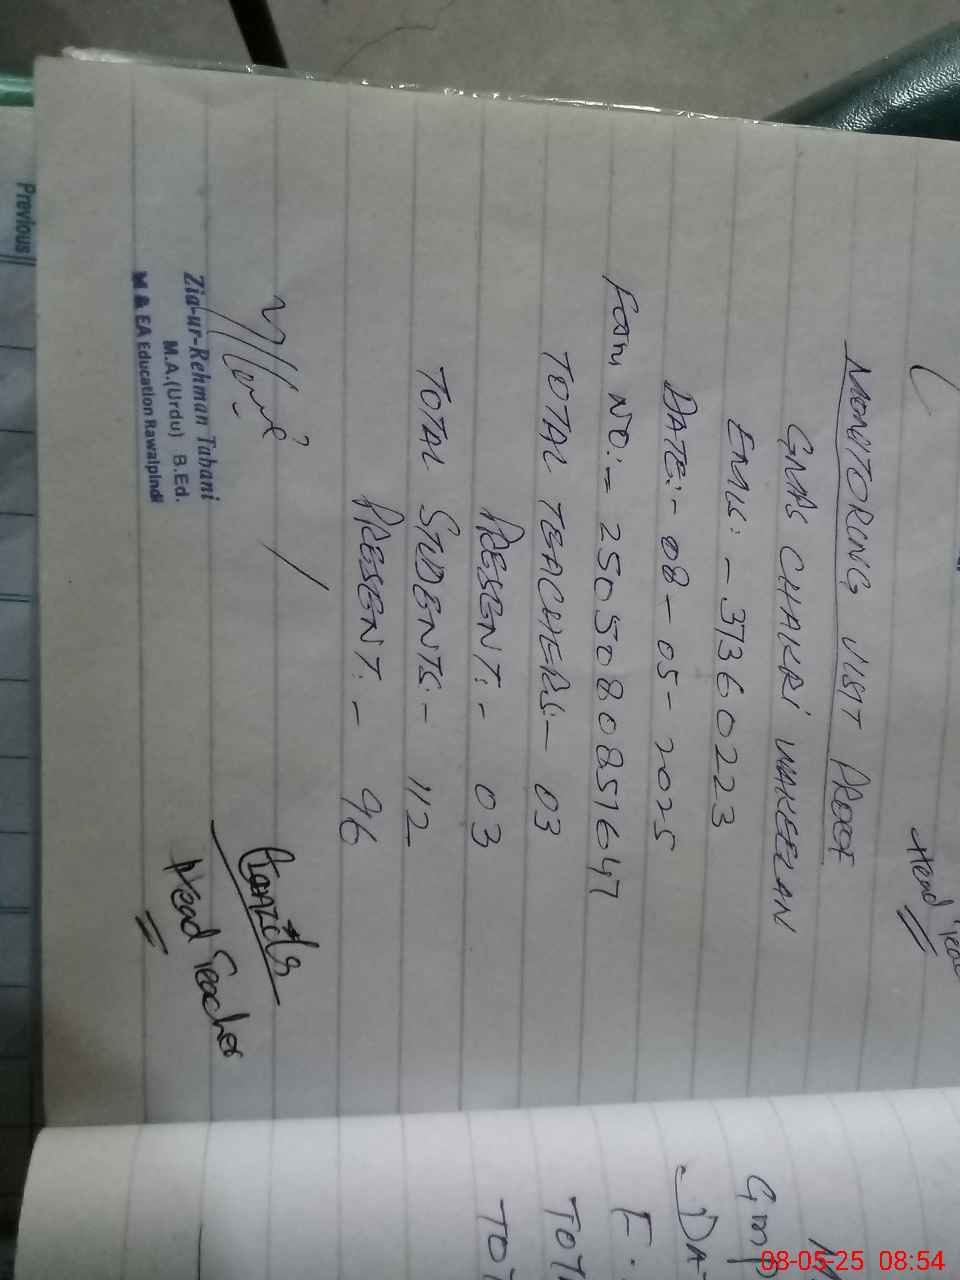 Head Teac
MONITORING VISIT PROOF
GMPS CHAKRI WAKEELAN
EMIS:- 37360223
DATE:- 08-05-2025
FORM NO:- 2505080851647
TOTAL TEACHERS:- 03
PRESENT:- 03
TOTAL STUDENTS:- 112
PRESENT:- 96
Head Teacher
Zia-ur-Rehman Tabani
M.A.(Urdu) B.Ed.
M & EA Education Rawalpindi
Previous
M
GMP
DA
F.
TOT
TOT
08-05-25 08:54